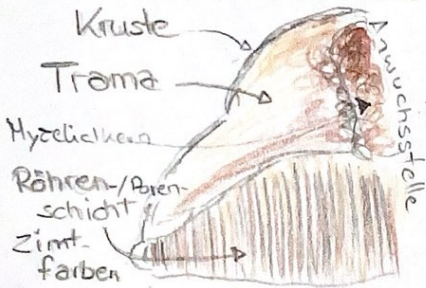 Kruste
Trama
Myzelialkern
Röhren-/Poren-
schicht
Zimt-
farben
Anwuchsstelle